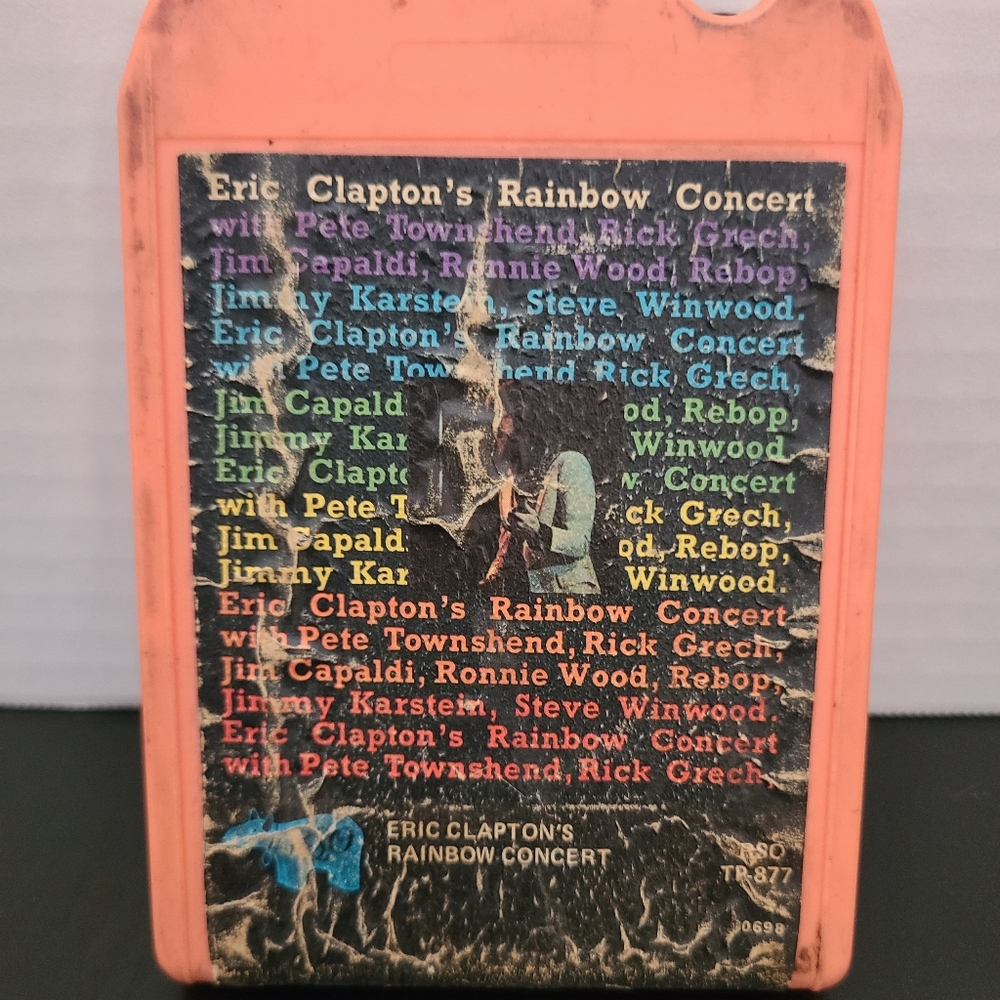 Eric Clapton's Rainbow Concert
with Pete Townshend, Rick Grech,
Jim Capaldi, Ronnie Wood, Rebop,
Jimmy Karstein, Steve Winwood.
Eric Clapton's Rainbow Concert
with Pete Townshend, Rick Grech,
Jim Capald od, Rebop,
Jimmy Kar Winwood
Eric Clapto w Concert
with Pete T ck Grech,
Jim Capald od, Rebop,
Jimmy Kar Winwood.
Eric Clapton's Rainbow Concert
with Pete Townshend, Rick Grech,
Jim Capaldi, Ronnie Wood, Rebop,
Jimmy Karstein, Steve Winwood.
Eric Clapton's Rainbow Concert
with Pete Townshend, Rick Grech,
ERIC CLAPTON'S
RAINBOW CONCERT
RSO
TP-877
0698